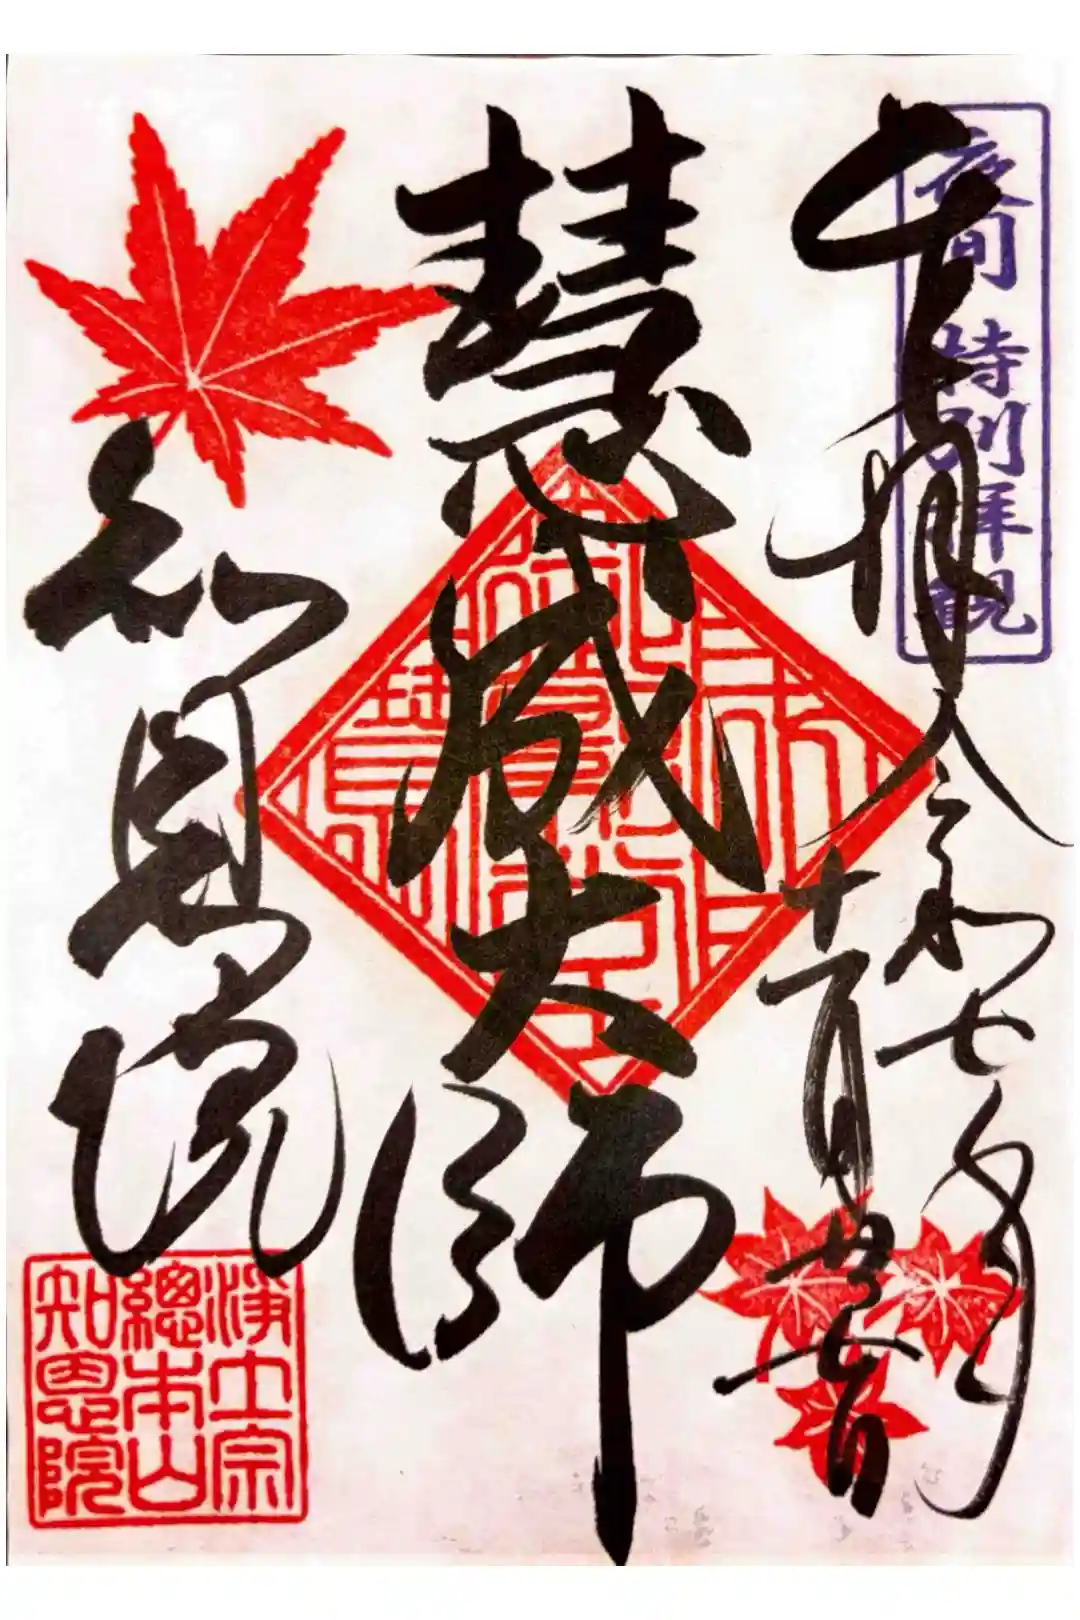 夜間 特別拝観
奉拝
令和七年
十一月
慧成大師
知恩院
淨土宗
總本山
知恩院